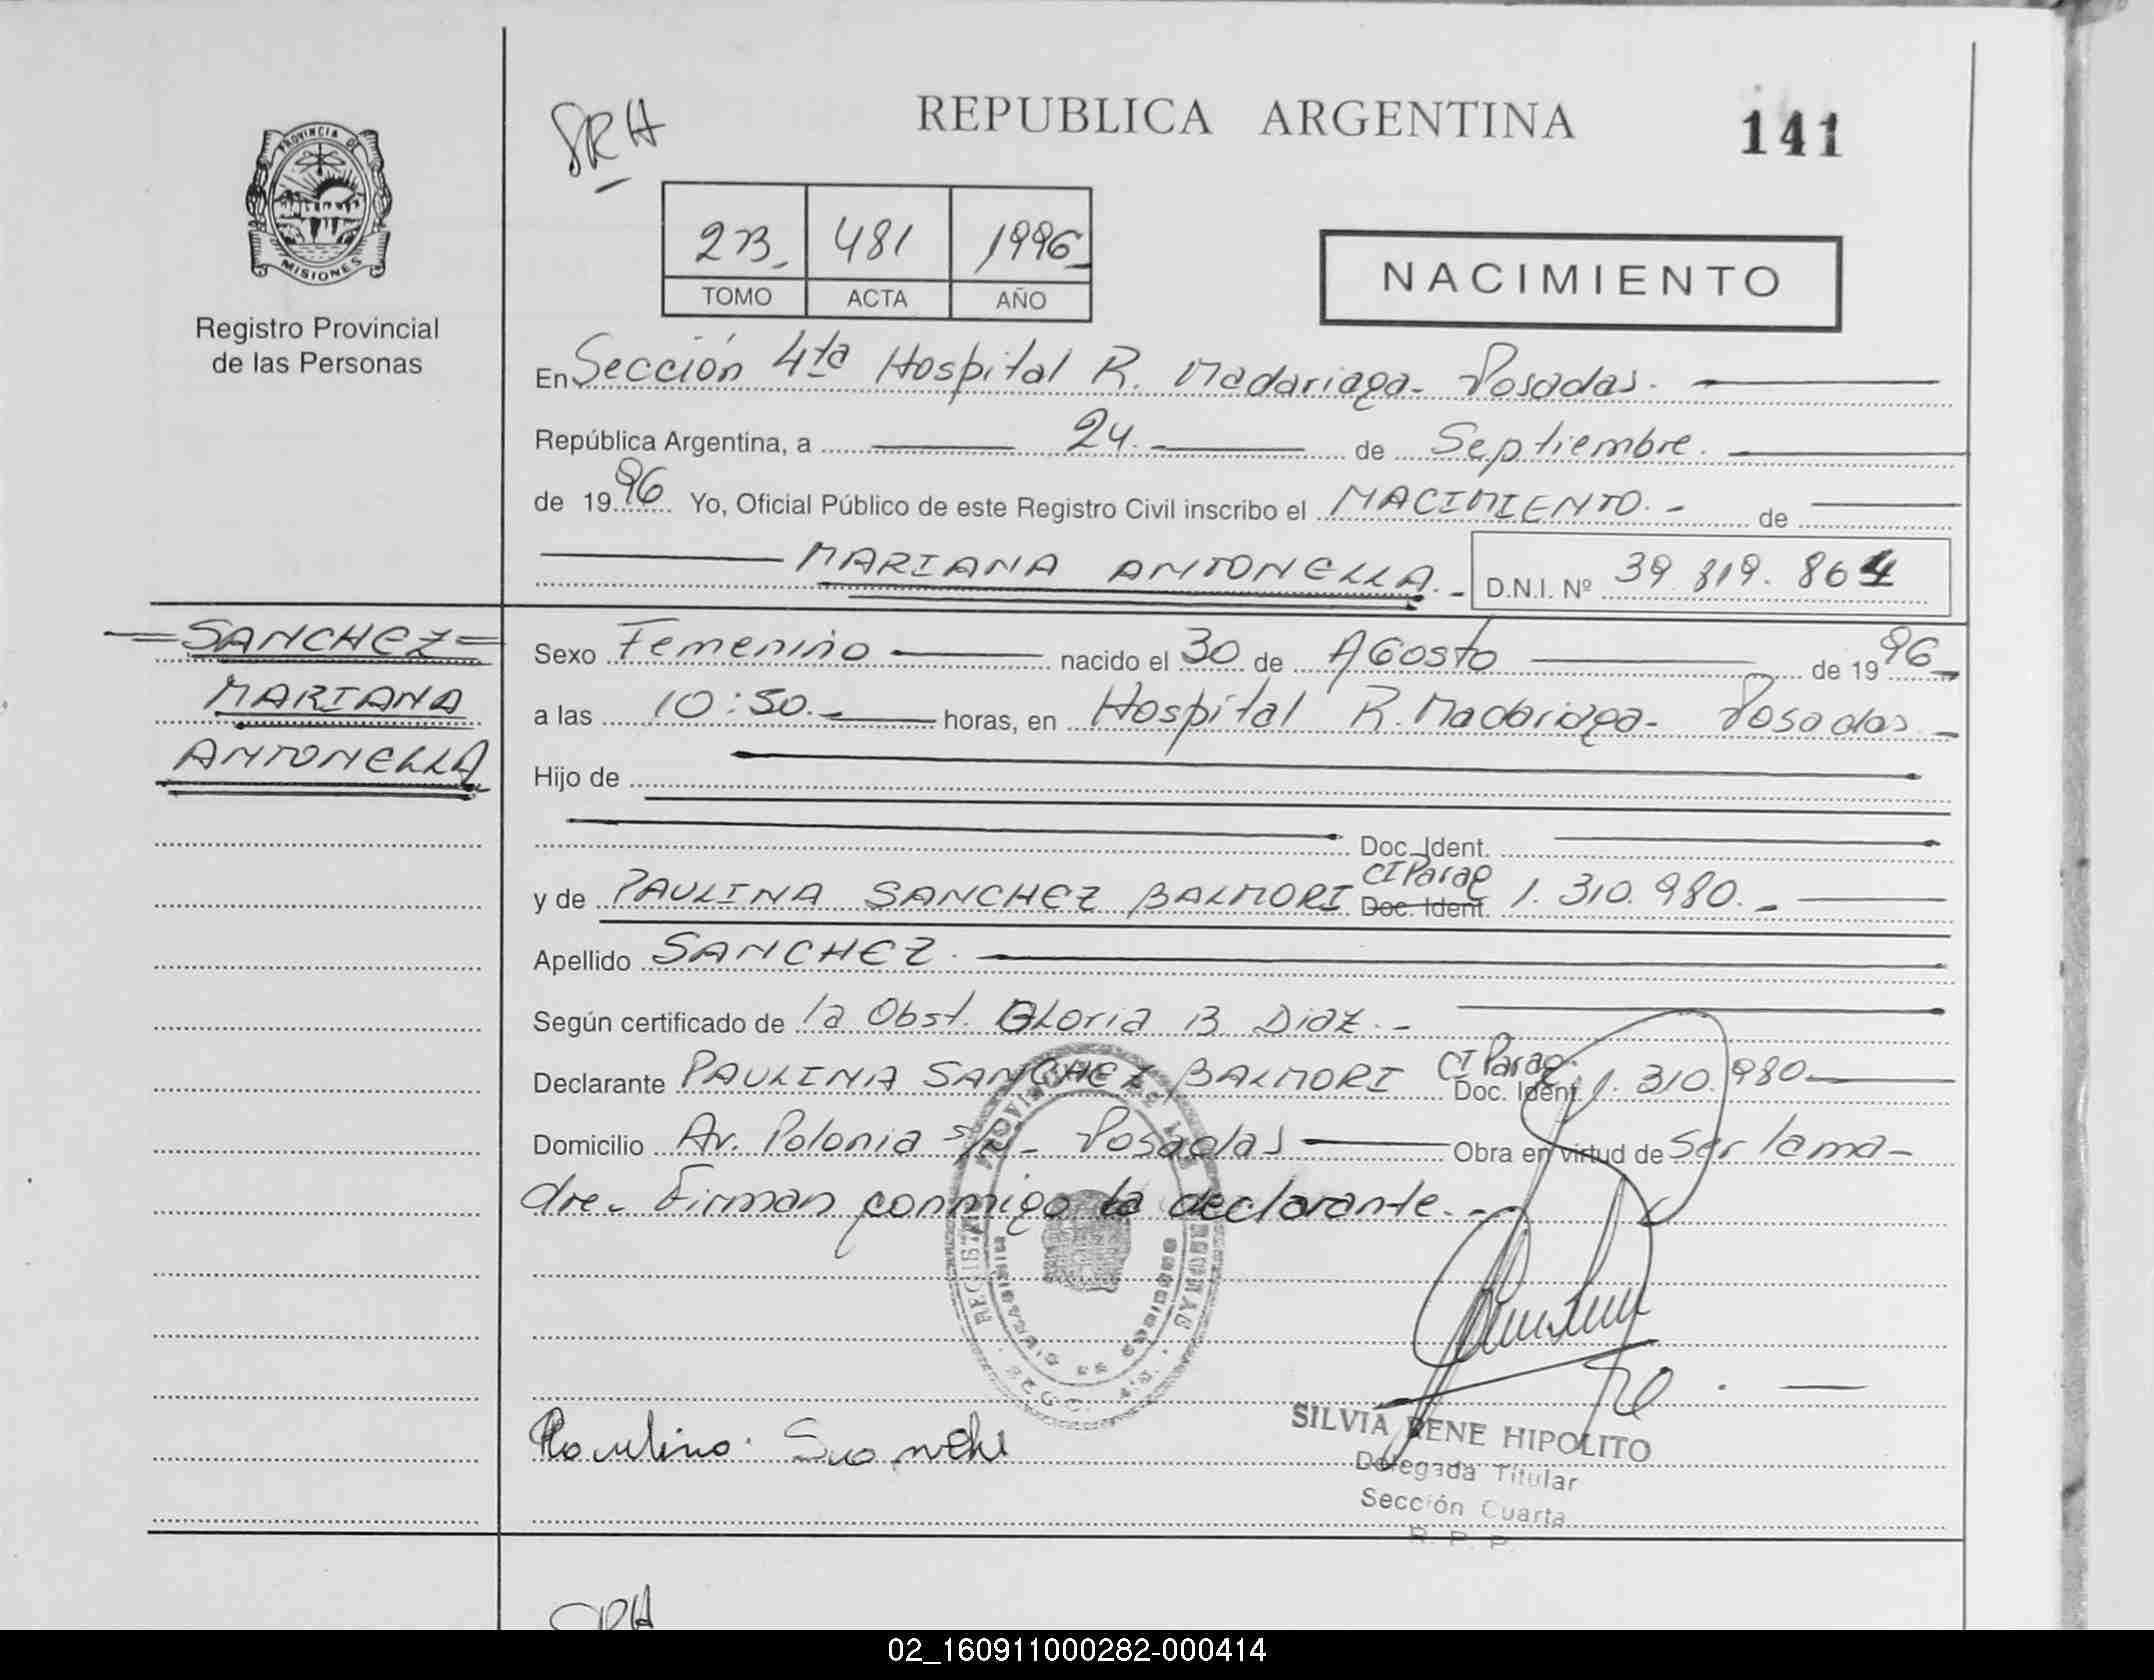 PROVINCIA DE
MISIONES
Registro Provincial
de las Personas
SRH
REPUBLICA ARGENTINA
141
2B 481 1996
TOMO ACTA AÑO
NACIMIENTO
En Sección 4ta Hospital R. Madariaga - Posadas.
República Argentina, a 24. de Septiembre.
de 1996 Yo, Oficial Público de este Registro Civil inscribo el NACIMIENTO.- de
MARIANA ANTONELLA.- D.N.I. Nº 39.819.864
=SANCHEZ=
MARIANA
ANTONELLA
Sexo Femenino nacido el 30 de AGosto de 1996
a las 10:50.- horas, en Hospital R. Madariaga - Posadas.-
Hijo de
Doc. Ident.
CI Parag
y de PAULINA SANCHEZ BALMORI Doc. Ident. 1.310.980.-
Apellido SANCHEZ.
Según certificado de la Obst. GLoria B Diaz.-
Declarante PAULINA SANCHEZ BALMORI CI Parag. Doc. Ident. 1.310.980
Domicilio Av. Polonia s/n - Posadas Obra en virtud de Ser la ma-
dre.- Firman conmigo la declarante.-
Paulina Sanche
SILVIA RENE HIPOLITO
Delegada Titular
Sección Cuarta
R. P. P.
SRH
02_160911000282-000414